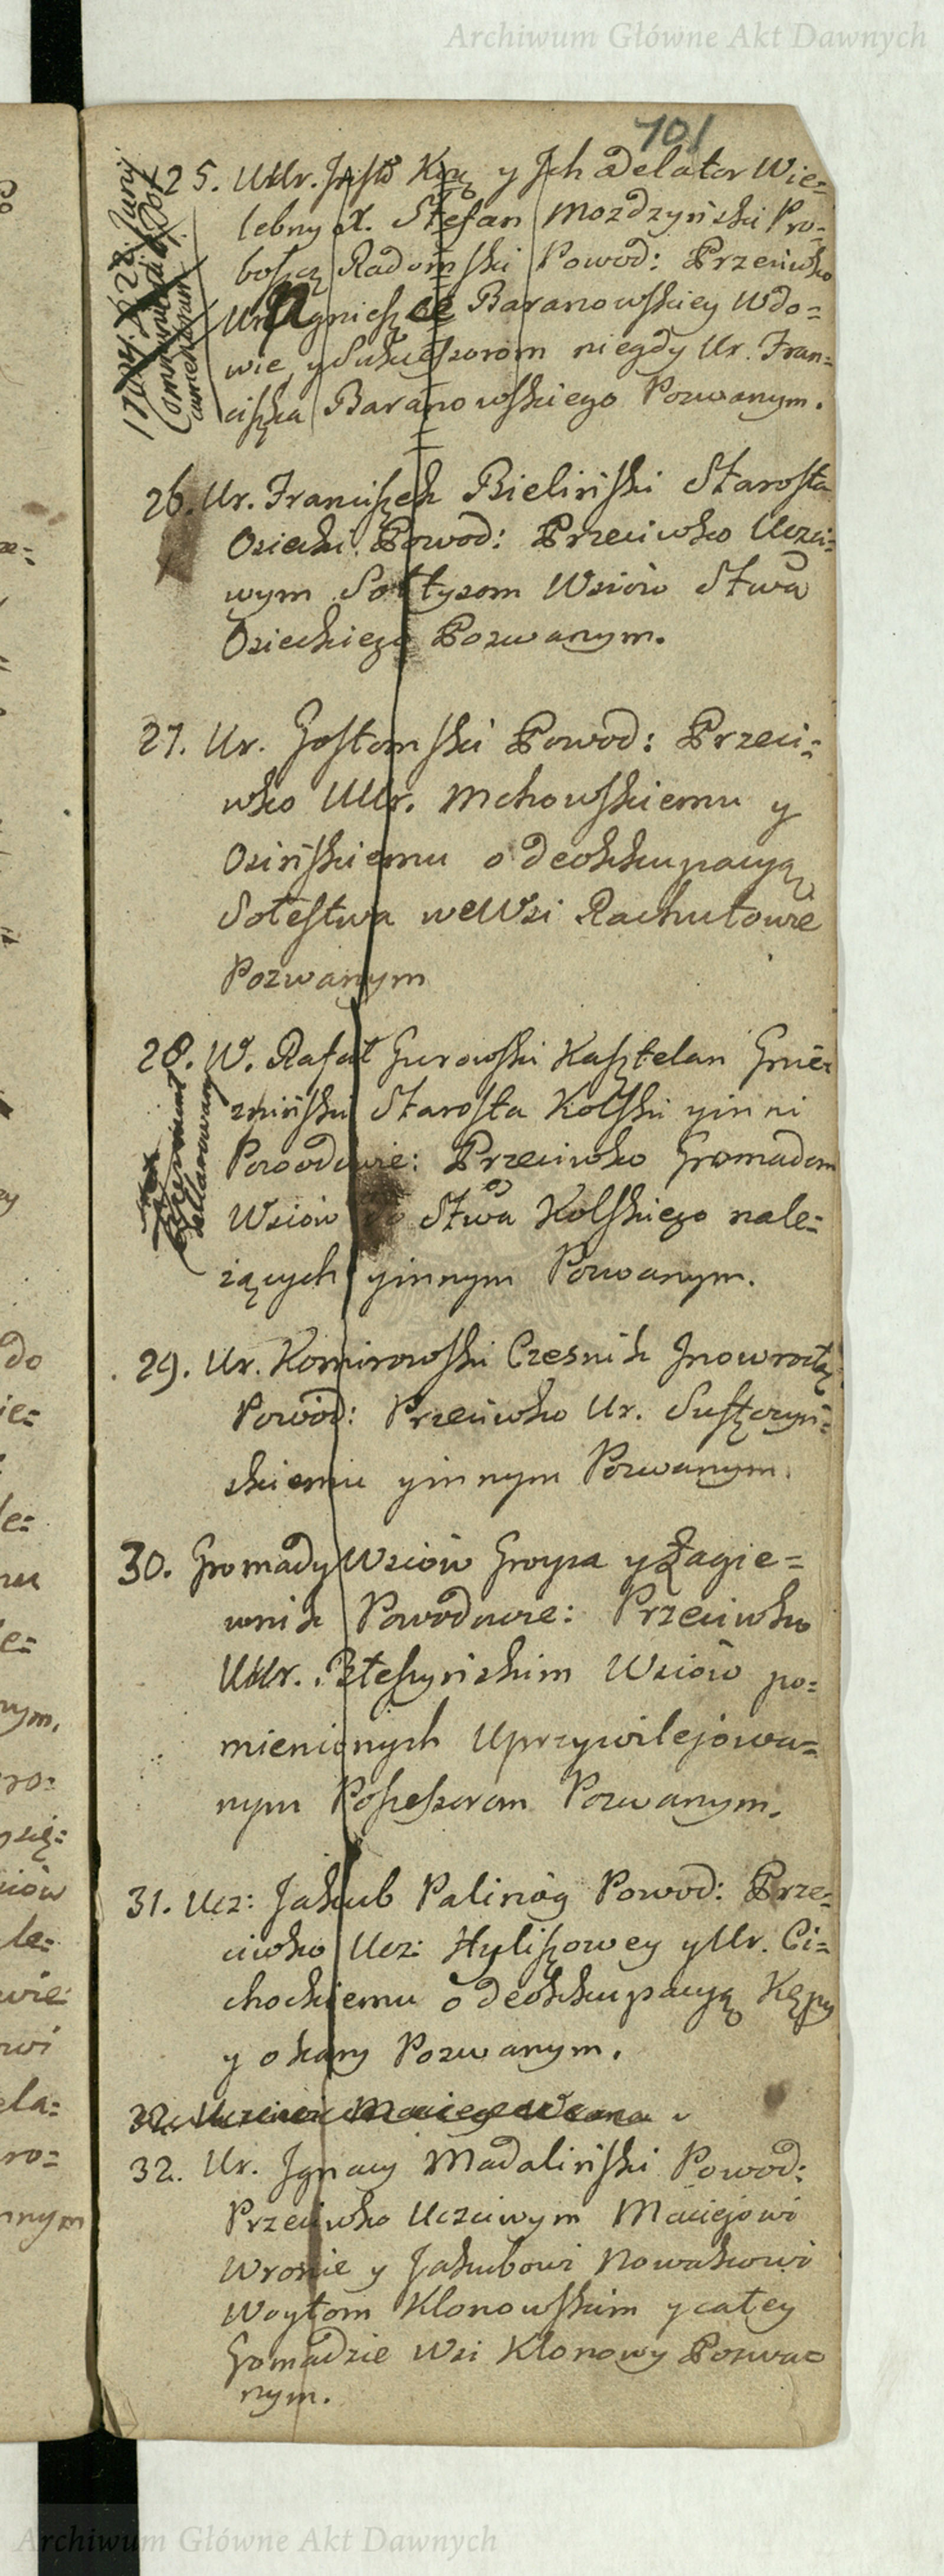 Archiwum Główne Akt Dawnych
101
25. UUr. Insty Kny y Jch Delator Wie=
lebny X. Stefan Mozdzyński Pro=
boszcz Radomski Powod: Przeciwko
Ur. Agnieszce Baranowskiey Wdo=
wie, y Sukcessorom niegdy Ur. Fran=
ciszka Baranowskiego Pozwanym.
26. Ur. Franciszek Bieliński Starosta
Osiecki Powod: Przeciwko Uczci=
wym Sołtysom Wsiów Stwa
Osieckiego Pozwanym.
27. Ur. Gostomski Powod: Przeci=
wko UUr. Mchowskiemu y
Osińskiemu o deokkupacyą
Sołestwa we Wsi Rachutowie
Pozwanym
28. W. Rafał Gurowski Kasztelan Gnie=
zniński Starosta Kolski y inni
Powodowie: Przeciwko Gromadom
Wsiów do Stwa Kolskiego nale=
żących y innym Pozwanym.
29. Ur. Komirowski Czesnik Jnowrocł
Powod: Przeciwko Ur. Suszczyń=
skiemu y innym Pozwanym.
30. Gromady Wsiów Groysa y Żagie=
wnik Powodowie: Przeciwko
UUr. Błeszyńskim Wsiów po=
mienionych Uprzywilejowa=
nym Possessorom Pozwanym.
31. Ucz: Jakub Palinóg Powod: Prze=
ciwko Ucz: Hyliszowey y Ur. Ci=
chockiemu o deokkupacyą Kępy
y o kary Pozwanym.
32. Ur. Jgnacy Madaliński Powod:
Przeciwko Uczciwym Maciejowi
Wronie y Jakubowi Nowakowi
Woytom Klonowskim y całey
Gromadzie Wsi Klonowy Pozwa=
nym.
Archiwum Główne Akt Dawnych